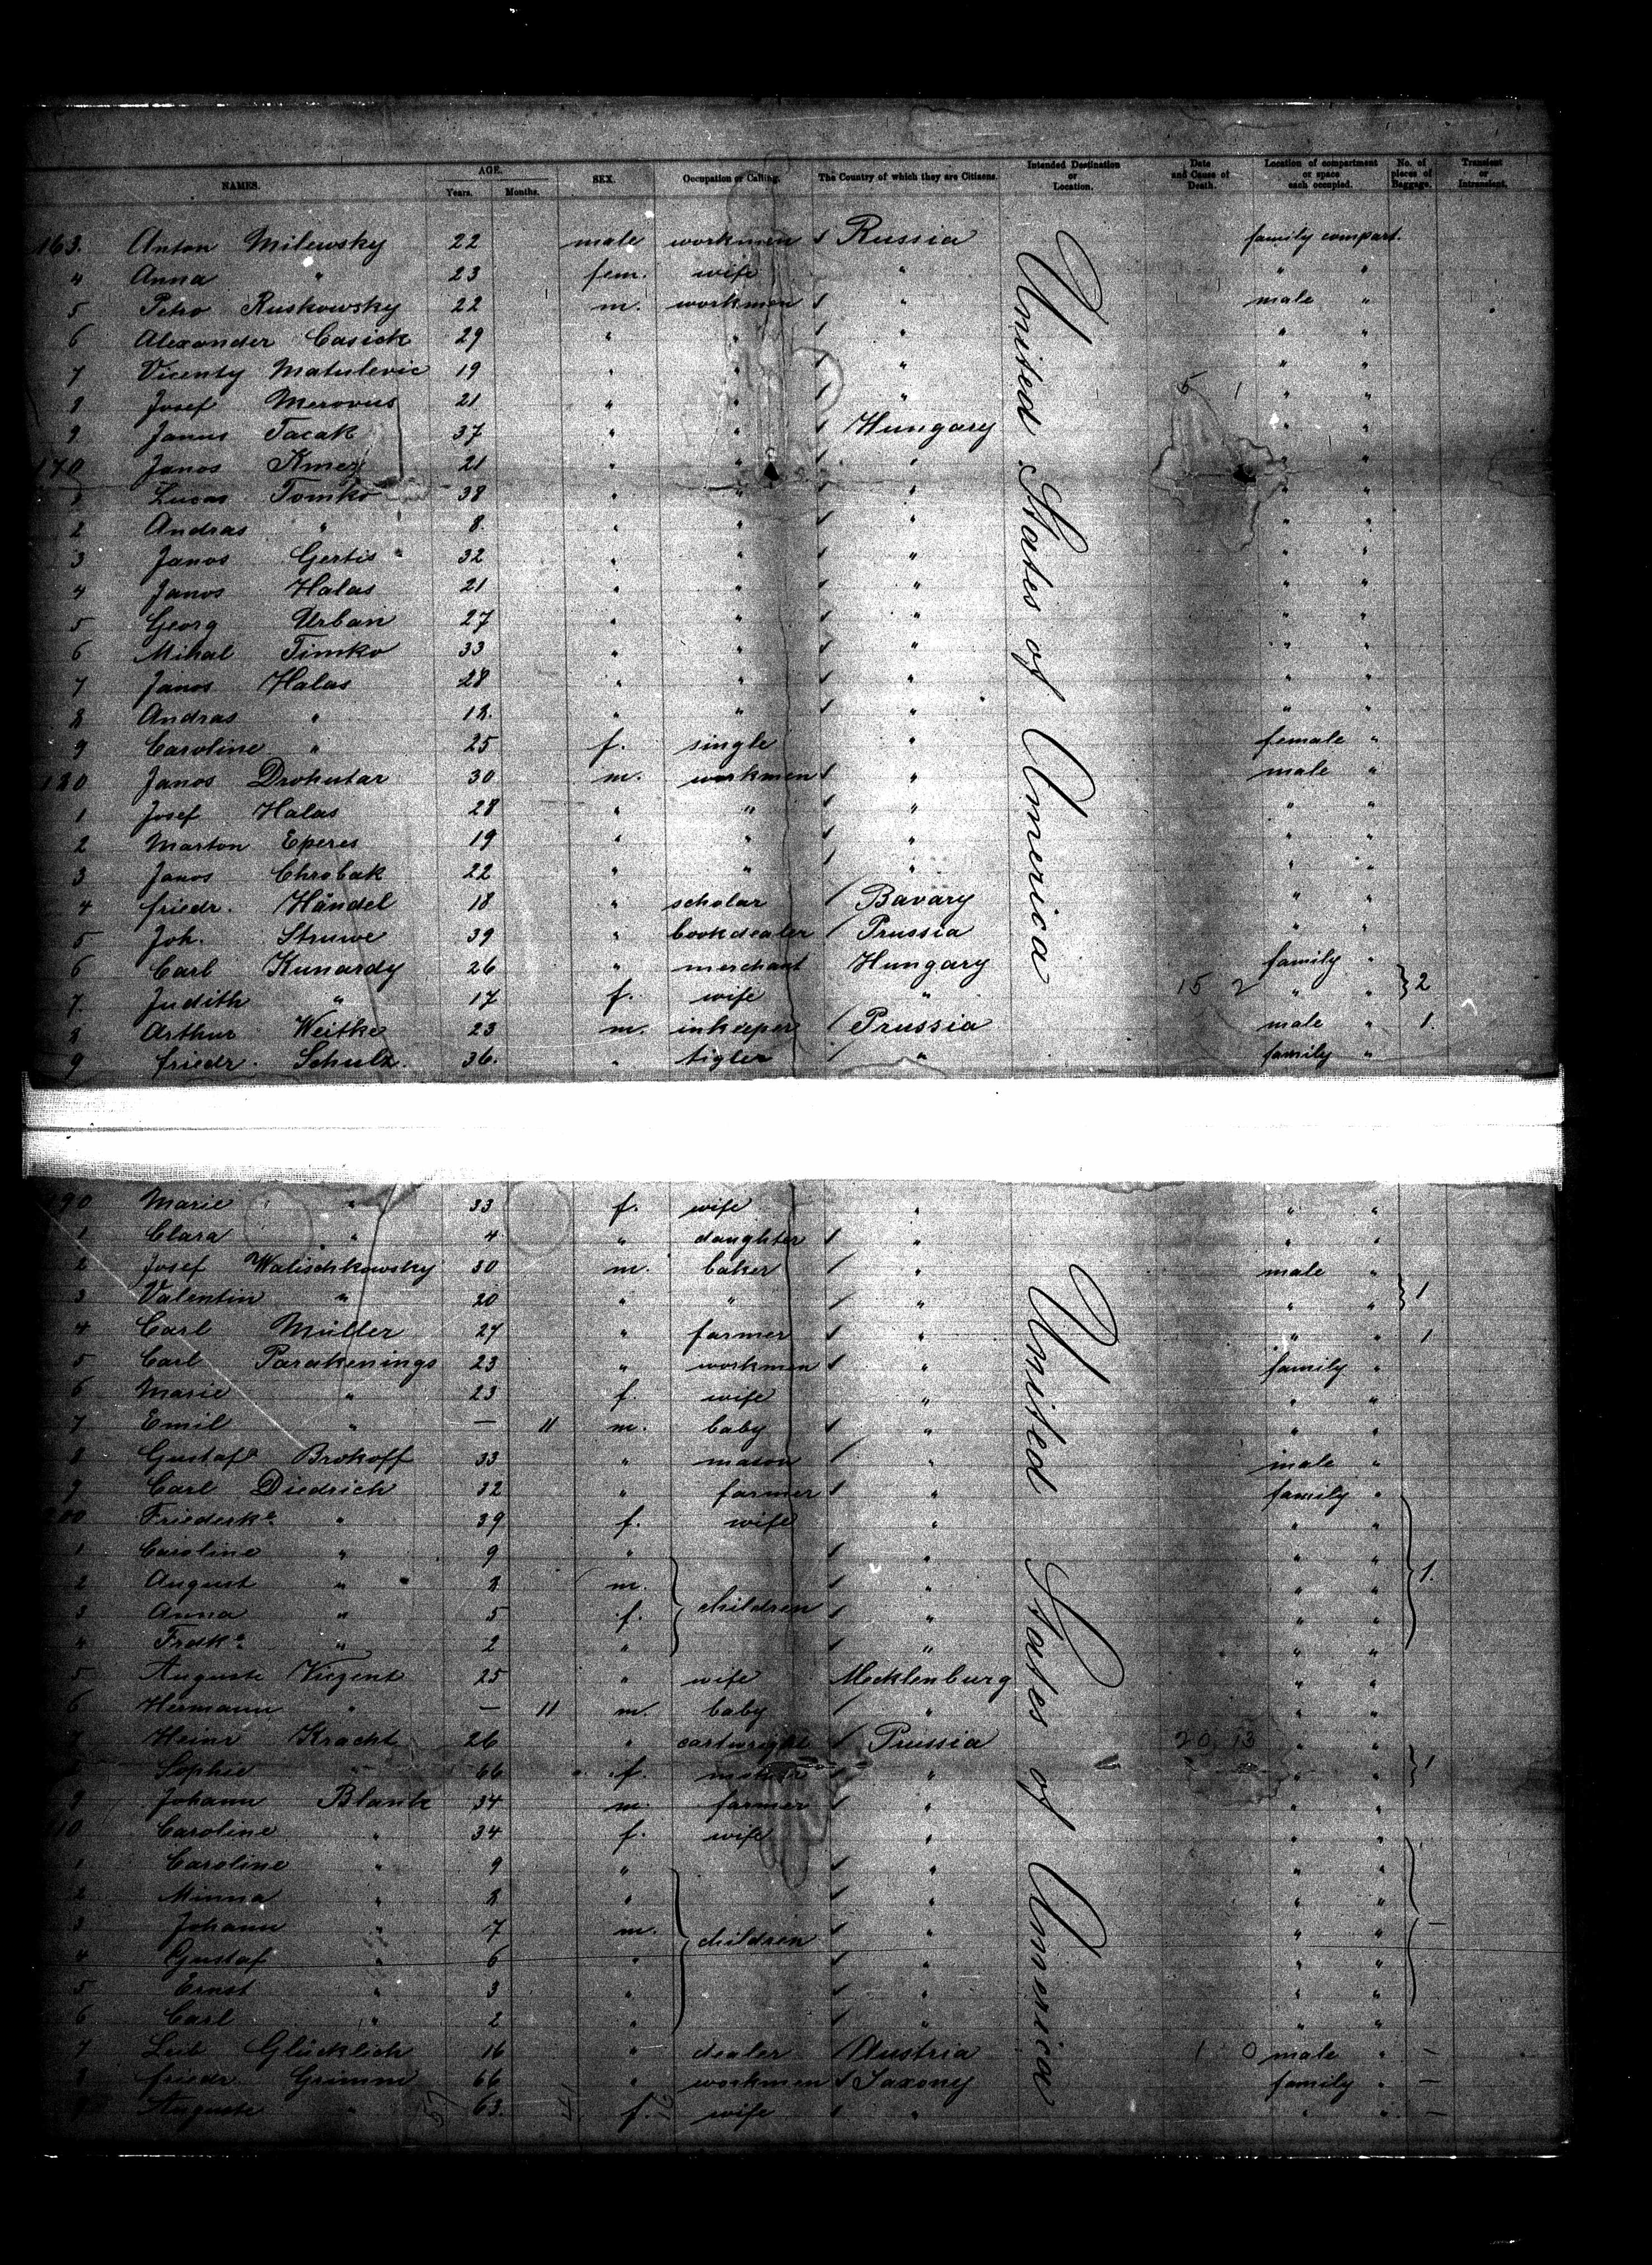 NAMES. AGE. Years. Months. SEX. Occupation or Calling. The Country of which they are Citizens. Intended Destination or Location. Date and Cause of Death. Location of compartment or space each occupied. No. of pieces of Baggage. Transient or Intransient.
163. Anton Milewsky 22 male workmen Russia family compart.
4 Anna " 23 fem. wife " " "
5 Petro Ruskowsky 22 m. workmen " male "
6 Alexander Casick 29 " " " " "
7 Vicenty Matulevic 19 " " " " "
8 Josef Merovus 21 " " " 5 1 " "
9 Janus Tacak 37 " " Hungary " "
170 Janos Kmez 21 " " " " "
Lucas Tomko 38 " " " " "
2 Andras " 8. " " " " "
3 Janos Gertis 32 " " " " "
4 Janos Halas 21 " " " " "
5 Georg Urban 27 " " " " "
6 Mihal Timko 33 " " " " "
7 Janos Halas 28 " " " " "
8 Andras " 18. " " " " "
9 Caroline " 25 f. single " female "
180 Janos Drohutar 30 m. workmen " male "
1 Josef Halas 28 " " " " "
2 Marton Eperes 19 " " " " "
3 Janos Chrobak 22 " " " " "
4 friedr. Händel 18 " scholar Bavary " "
5 Joh. Struwe 39 " bookdealer Prussia " "
6 Carl Kunardy 26 " merchant Hungary family "
7. Judith " 17 f. wife " 15 2 " " 2
8 Arthur Weitke 23 m. inkeeper Prussia male " 1.
9 friedr. Schulz. 36. " tigler " family "
United States of America
190 Marie " 33 f. wife " " "
1 Clara " 4 " daughter " " "
2 Josef Walischkowsky 30 m. baker " male "
3 Valentin " 20 " " " " " 1
4 Carl Müller 27 " farmer " " " 1
5 Carl Parakenings 23 " workmen " family "
6 Marie " 23 f. wife " " "
7 Emil " — 11 m. baby " " "
8 Gustaf Brokoff 33 " mason " male "
9 Carl Diedrich 32 " farmer " family "
200 Friederke " 39 f. wife " " "
1 Caroline " 9 " " " "
2 August " 8 m. " " " 1.
3 Anna " 5 f. children " " "
4 Frdke " 2 " " " "
5 Auguste 25 " wife Mecklenburg " "
6 Hermann " — 11 m. baby " " "
7 Heinr Kracht 26 " cartwright Prussia 20 13 " "
Sophie " 66 f. " " " 1
9 Johann Blank 34 m. farmer " " "
10 Caroline " 34 f. wife " " "
1 Caroline " 9 " " " "
2 Minna " 8 " " " "
3 Johann " 7 m. children " " " —
4 Gustaf " 6 " " " "
5 Ernst " 3 " " " "
6 Carl " 2 " " " "
7 Leib Glücklich 16 " dealer Austria 1 0 male " —
8 friedr. Grimm 66 " workmen Saxony family " —
9 Auguste " 63. f. wife " " " —
United States of America